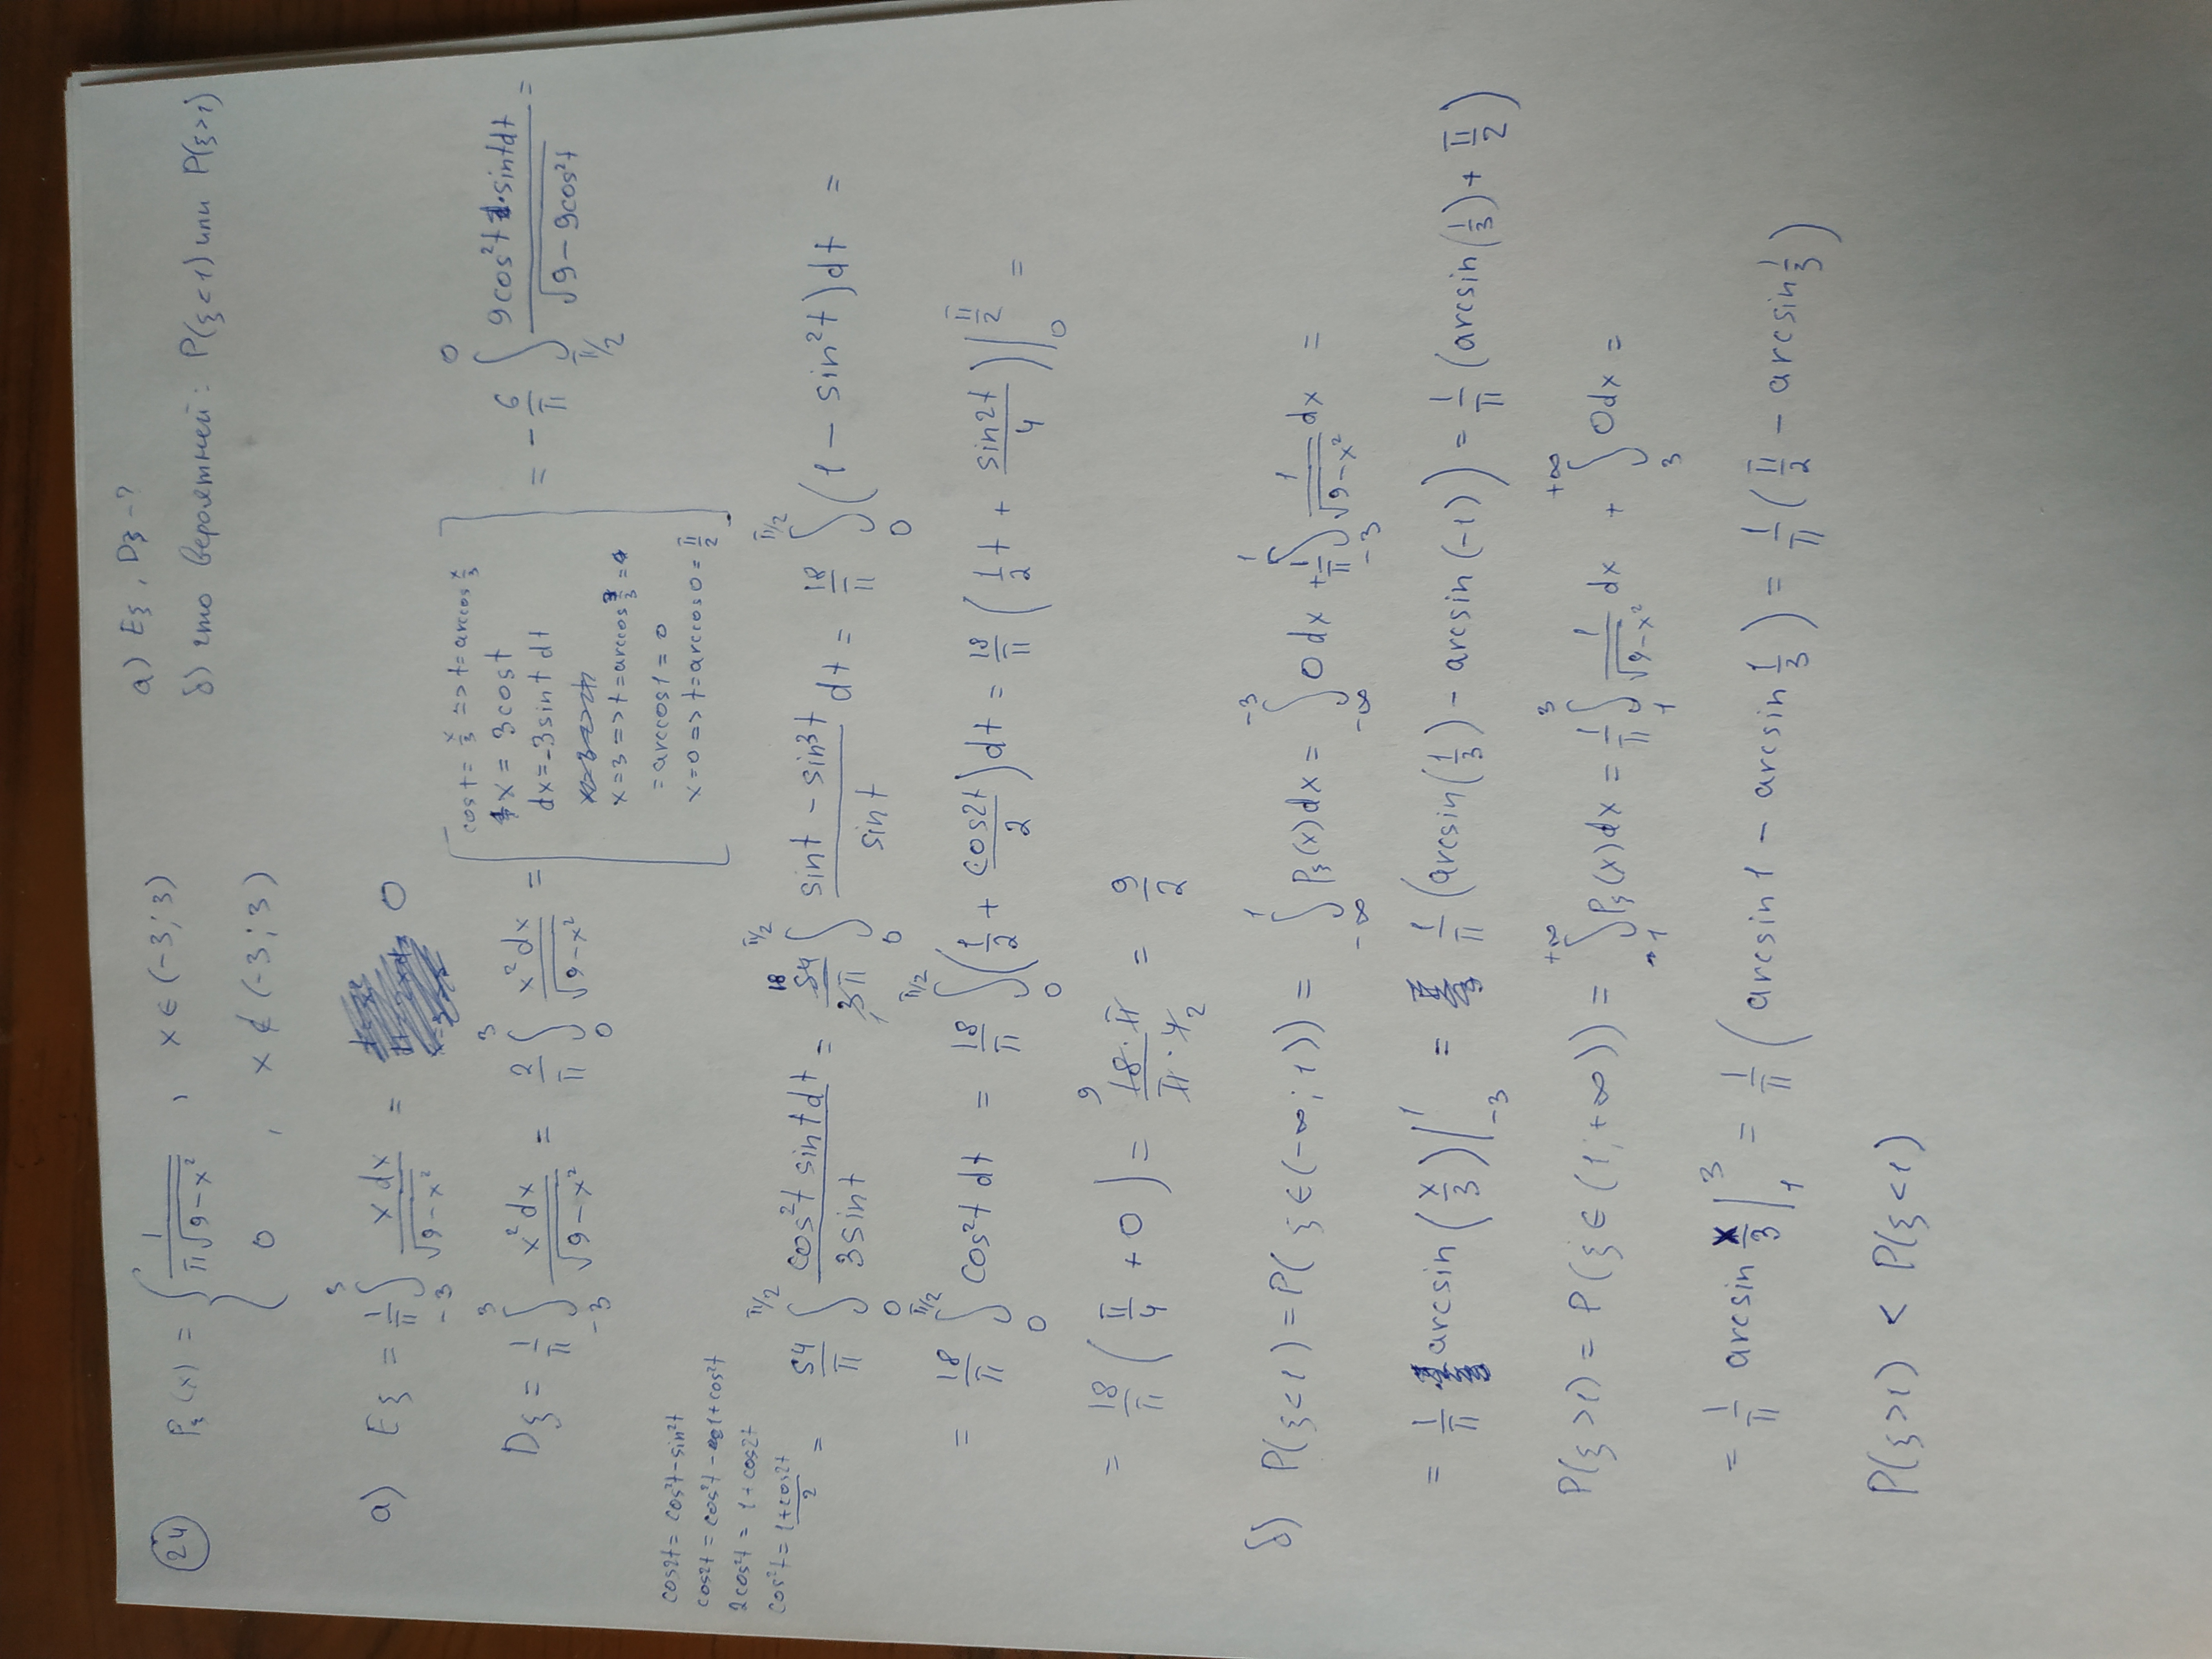 24 Pξ(x) = { 1/(π√(9-x²)) , x ∈ (-3; 3)
0 , x ∉ (-3; 3)
а) Eξ, Dξ - ?
б) что вероятней: P(ξ<1) или P(ξ>1)
а) Eξ = 1/π ∫_{-3}^{3} xdx/√(9-x²) = 0
Dξ = 1/π ∫_{-3}^{3} x²dx/√(9-x²) = 2/π ∫_{0}^{3} x²dx/√(9-x²) = [
cost = x/3 => t = arccos x/3
x = 3cost
dx = -3sint dt
x=3 => t = arccos 3/3 =
= arccos1 = 0
x=0 => t = arccos0 = π/2
] = -6/π ∫_{π/2}^{0} 9cos²t · sintdt/√(9-9cos²t) =
cos2t = cos²t - sin²t
cos2t = cos²t - 1 + cos²t
2cos²t = 1 + cos2t
cos²t = (1+cos2t)/2
= 54/π ∫_{0}^{π/2} cos²t sintdt/3sint = 54/3π 18 1 ∫_{0}^{π/2} (sint - sin³t)/sint dt = 18/π ∫_{0}^{π/2} (1 - sin²t)dt =
= 18/π ∫_{0}^{π/2} cos²t dt = 18/π ∫_{0}^{π/2} (1/2 + cos2t/2)dt = 18/π (1/2 t + sin2t/4)|_{0}^{π/2} =
= 18/π (π/4 + 0) = 9 18·π/π·4 2 = 9/2
б) P(ξ<1) = P(ξ ∈ (-∞; 1)) = ∫_{-∞}^{1} Pξ(x)dx = ∫_{-∞}^{-3} 0dx + 1/π ∫_{-3}^{1} 1/√(9-x²) dx =
= 1/π arcsin(x/3)|_{-3}^{1} = 1/π (arcsin(1/3) - arcsin(-1)) = 1/π (arcsin(1/3) + π/2)
P(ξ>1) = P(ξ ∈ (1; +∞)) = ∫_{1}^{+∞} Pξ(x)dx = 1/π ∫_{1}^{3} 1/√(9-x²) dx + ∫_{3}^{+∞} 0dx =
= 1/π arcsin x/3|_{1}^{3} = 1/π (arcsin1 - arcsin 1/3) = 1/π (π/2 - arcsin 1/3)
P(ξ>1) < P(ξ<1)